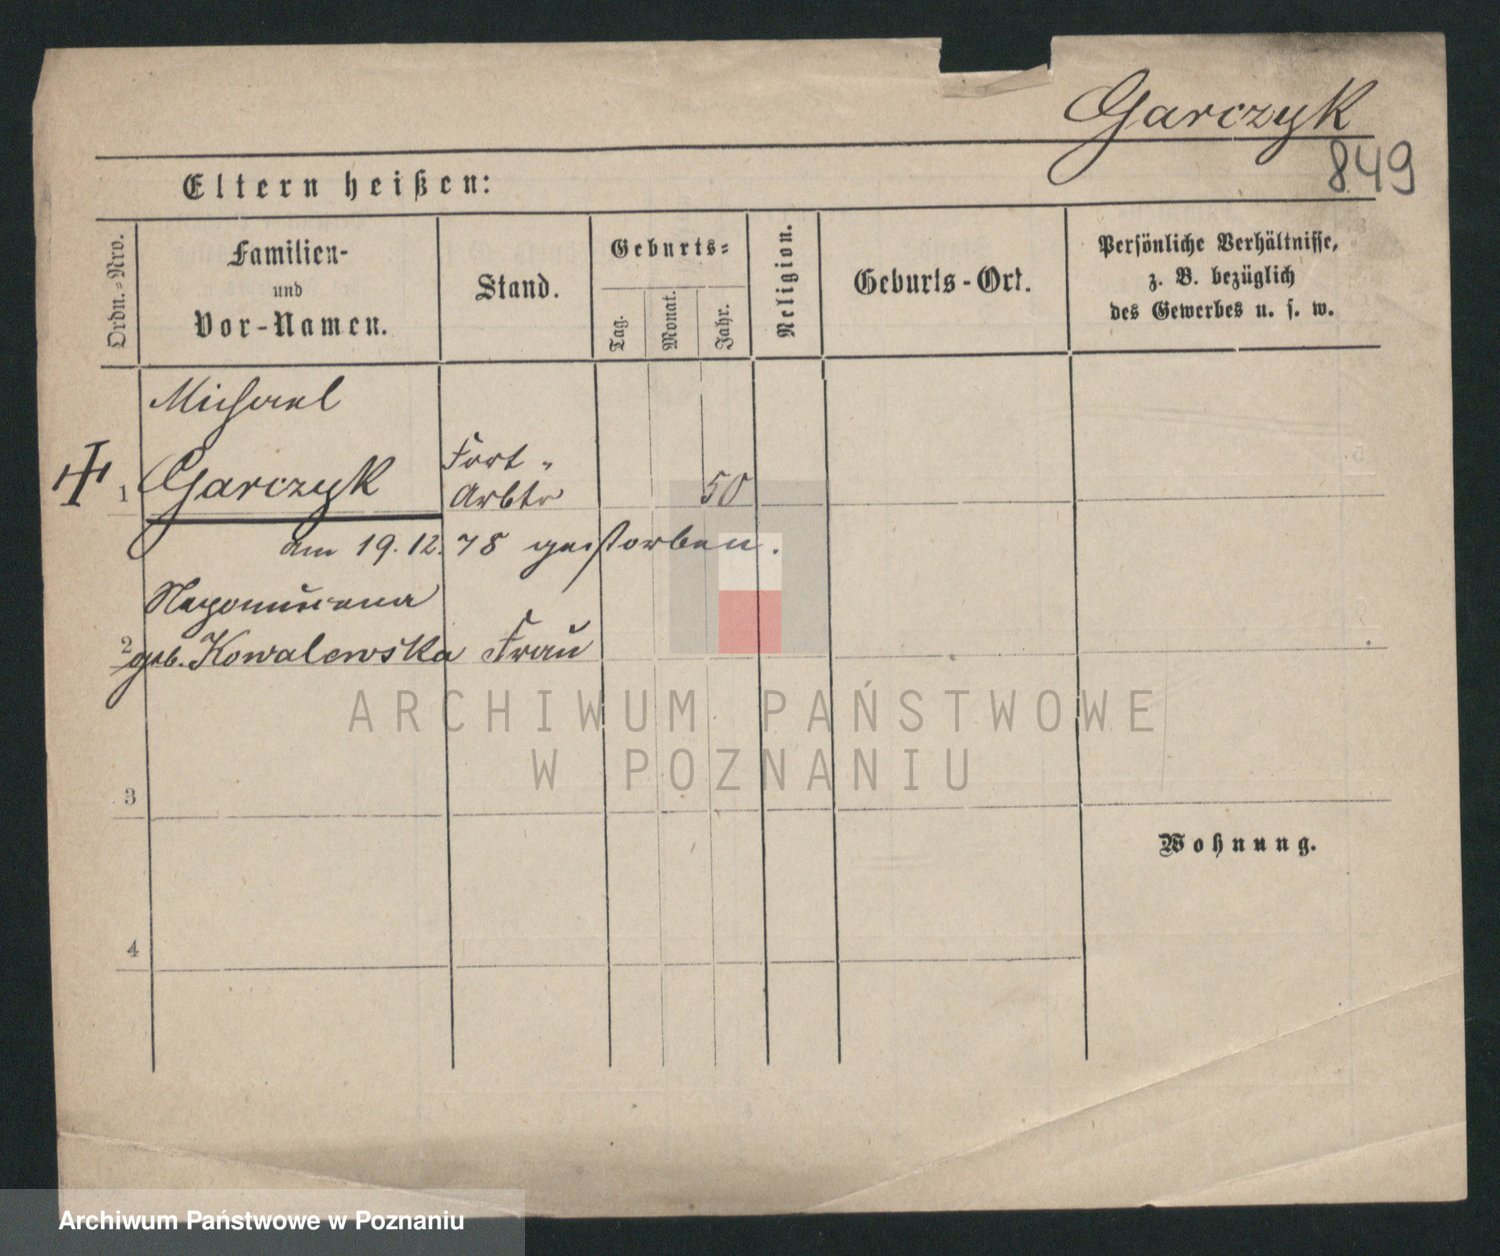 Garczyk
849
Eltern heißen:
Ordn.=Nro.
Familien-
und
Vor-Namen.
Stand.
Geburts=
Tag.
Monat.
Jahr.
Religion.
Geburts-Ort.
Persönliche Verhältnisse,
z. B. bezüglich
des Gewerbes u. s. w.
Michael
1 Garczyk
Fort-
Arbtr
50
am 19.12.78 gestorben.
Nepomucena
2 geb. Kowalewska Frau
ARCHIWUM PAŃSTWOWE
W POZNANIU
3
Wohnung.
4
Archiwum Państwowe w Poznaniu